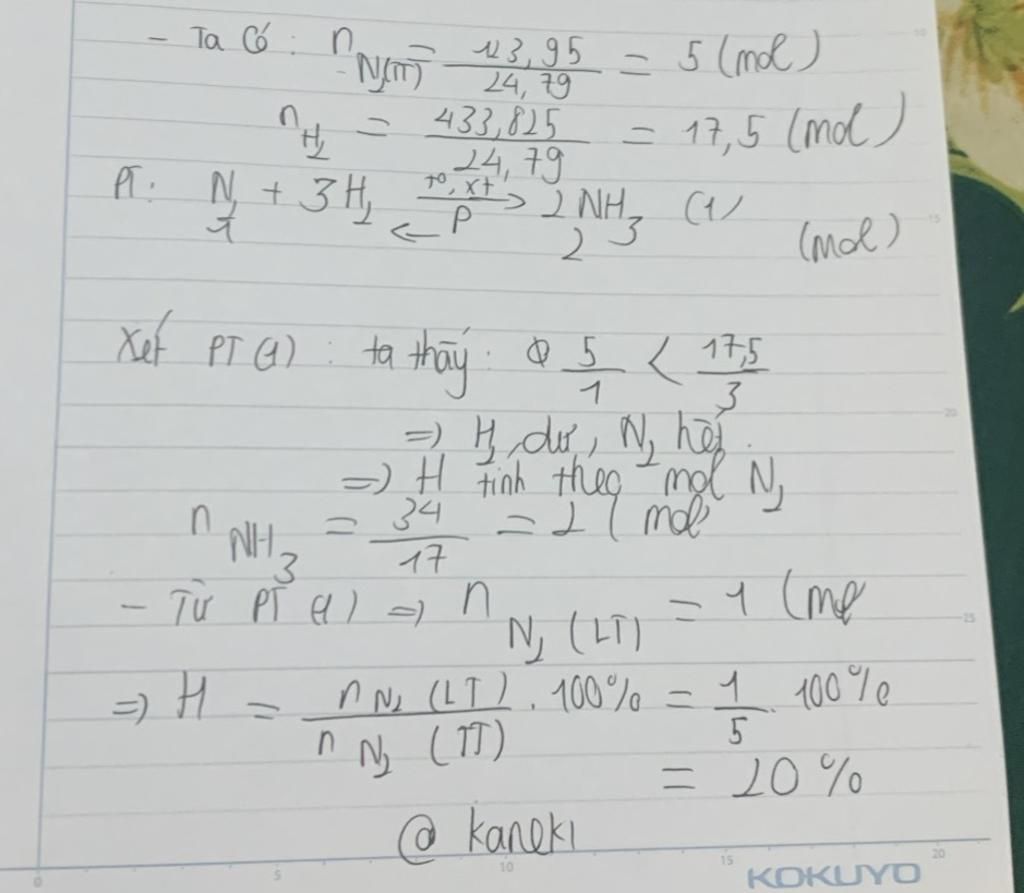 - Ta có: n N₂(TT) = 123,95 / 24,79 = 5 (mol)
n H₂ = 433,825 / 24,79 = 17,5 (mol)
PT: N₂ + 3H₂ ⇌ (t°, xt / P) 2NH₃ (1)
1 2 (mol)
Xét PT (1): ta thấy: 5/1 < 17,5/3
=> H₂ dư, N₂ hết.
=> H tính theo mol N₂
n NH₃ = 34 / 17 = 2 (mol
- Từ PT (1) => n N₂ (LT) = 1 (mol
=> H = n N₂ (LT) / n N₂ (TT) . 100% = 1/5 . 100%
= 20%
@ kaneki
0 5 10 15 20
KOKUYO
10
15
20
25